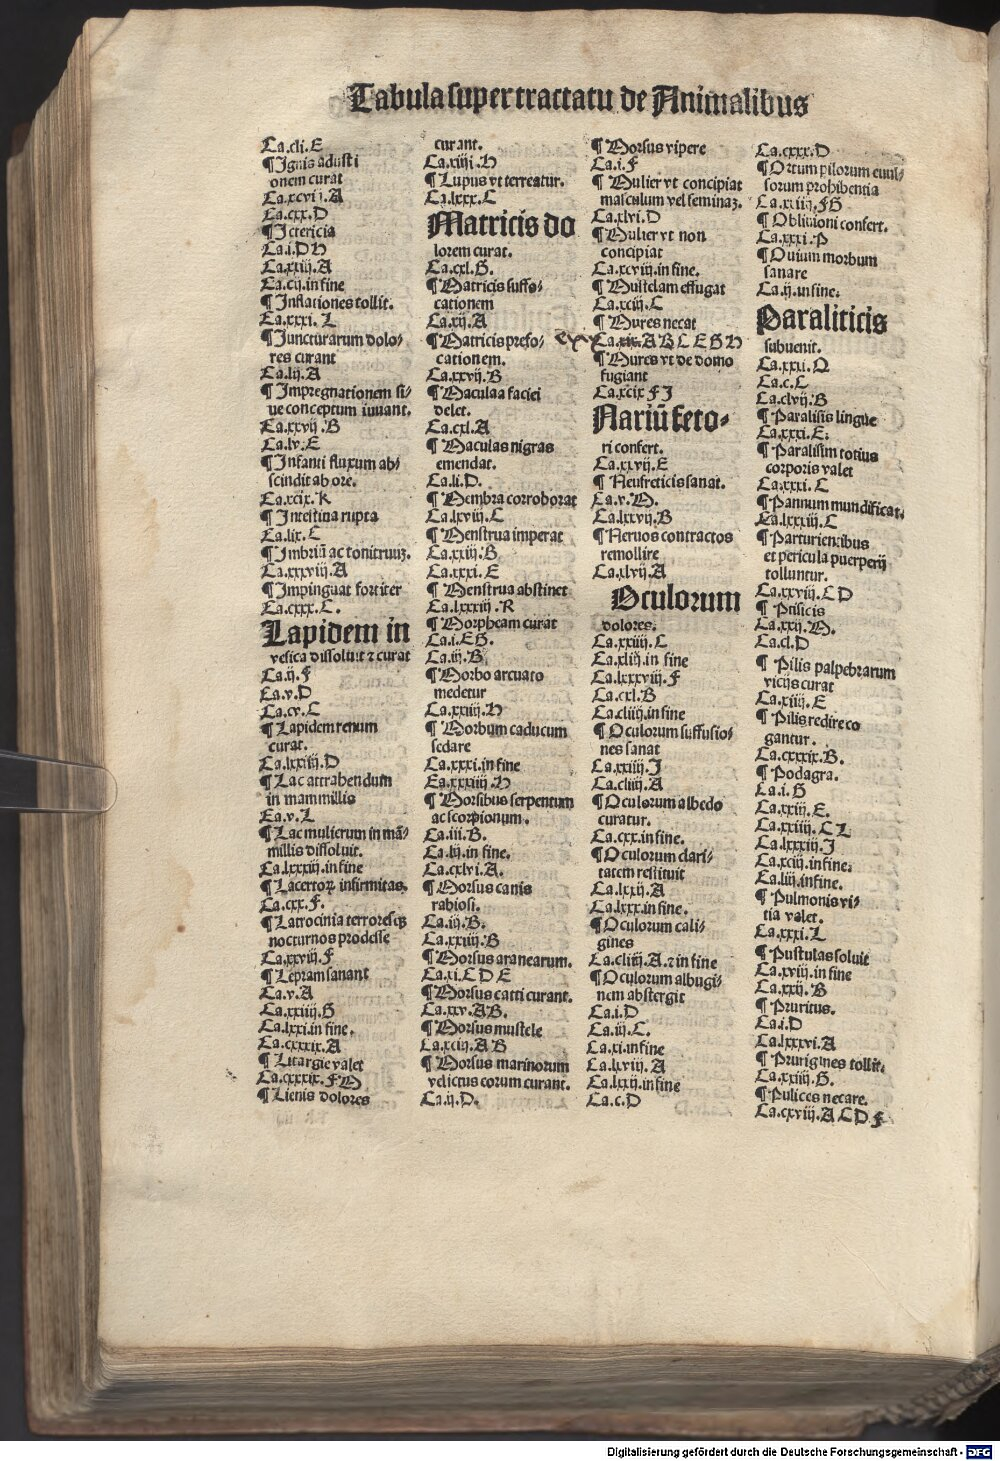 Tabula super tractatu de Animalibus
Ca.cli.E
¶ Ignis adusti
onem curat
Ca.xcvij.A
Ca.cxx.D
¶ Ictericia
Ca.i.D H
Ca.xxiij.A
Ca.cij.in fine
¶ Inflationes tollit.
Ca.xxxi.L
¶ Juncturarum dolo-
res curant
Ca.lij.A
¶ Impregnationem si-
ue conceptum iuuant.
Ca.xxvij.B
Ca.lv.E
¶ Infanti fluxum ab-
scindit ab ore.
Ca.xcix.K
¶ Intestina rupta
Ca.lix.C
¶ Imbriū ac tonitruuꝫ.
Ca.xxxviij.A
¶ Impinguat fortiter
Ca.cxxx.C.
Lapidem in
vesica dissoluit ⁊ curat
Ca.ij.F
Ca.v.D
Ca.cv.C
¶ Lapidem renum
curat.
Ca.lxxiij.D
¶ Lac attrahendum
in mammillis
Ca.v.L
¶ Lac mulierum in mā-
millis dissoluit.
Ca.lxxxiij.in fine
¶ Lacertoꝝ infirmitas.
Ca.cxx.F.
¶ Latrocinia terroresqꝫ
nocturnos prodesse
Ca.xxviij.F
¶ Lepram sanant
Ca.v.A
Ca.xxiiij.G
Ca.lxxi.in fine.
Ca.cxxxix.A
¶ Litargie valet
Ca.cxxxix.F M
¶ Lienis dolores
curant.
Ca.xiiij.H
¶ Lupus vt terreatur.
Ca.lxxx.C
Matricis do
lorem curat.
Ca.cxl.G.
¶ Matricis suffo-
cationem
Ca.xij.A
¶ Matricis prefo-
cationem.
Ca.xxvij.B
¶ Maculaa faciei
delet.
Ca.cxl.A
¶ Maculas nigras
emendat.
Ca.li.D.
¶ Membra corroborat
Ca.lxviij.C
¶ Menstrua imperat
Ca.xxiij.B
Ca.xxxi.E
¶ Menstrua abstinet
Ca.lxxxiij.K
¶ Morpheam curat
Ca.i.E G.
Ca.iij.B
¶ Morbo arcuato
medetur
Ca.xxiiij.H
¶ Morbum caducum
sedare
Ca.xxxi.in fine
Ca.xxxiiij.H
¶ Morsibus serpentum
ac scorpionum.
Ca.iii.B.
Ca.lij.in fine.
Ca.cxlvi.A.
¶ Morsus canis
rabiosi.
Ca.iij.B.
Ca.xxiiij.B
¶ Morsus aranearum.
Ca.xi.C D E
¶ Morsus catti curant.
Ca.xxv.A B.
¶ Morsus mustele
Ca.xciij.A B
¶ Morsus marinorum
velictus eorum curant.
Ca.ij.D.
¶ Morsus vipere
Ca.i.F
¶ Mulier vt concipiat
masculum vel feminaꝫ.
Ca.xlvi.D
¶ Mulier vt non
concipiat
Ca.xcviij.in fine.
¶ Mustelam effugat
Ca.xciij.C
¶ Mures necat
cxx
Ca.xix.A B C E G H
¶ Mures vt de domo
fugiant
Ca.xcix F J
Nariū feto-
ri confert.
Ca.xxvij.E
¶ Neufreticis sanat.
Ca.v.M.
Ca.lxxvij.B
¶ Neruos contractos
remollire
Ca.xlvij.A
Oculorum
dolores.
Ca.xxiiij.C
Ca.xliij.in fine
Ca.lxxxviij.F
Ca.cxl.B
Ca.cliiij.in fine
¶ Oculorum suffusio-
nes sanat
Ca.xxiiij.J
Ca.cliiij.A
¶ Oculorum albedo
curatur.
Ca.cxx.in fine.
¶ Oculorum clari-
tatem restituit
Ca.lxxij.A
Ca.lxxx.in fine.
¶ Oculorum cali-
gines
Ca.cliiij.A.⁊ in fine
¶ Oculorum albugi-
nem abstergit
Ca.i.D
Ca.iij.C.
Ca.xi.in fine
Ca.lxviij.A
Ca.lxxij.in fine
Ca.c.D
Ca.cxxx.D
¶ Ortum pilorum euul-
sorum prohibentia
Ca.xxiiij.F G
¶ Obliuioni confert.
Ca.xxxi.P
¶ Ouium morbum
sanare
Ca.ij.in fine.
Paraliticis
subuenit.
Ca.xxxi.Q
Ca.c.C
Ca.clvij.B
¶ Paralisis lingue
Ca.xxxi.E.
¶ Paralisim totius
corporis valet
Ca.xxxi.C
¶ Pannum mundificat.
Ca.lxxxiij.C
¶ Parturientibus
et pericula puerperij
tolluntur.
Ca.xxviij.C D
¶ Ptisicis
Ca.xxij.M.
Ca.cl.D
¶ Pilis palpebrarum
vicijs curat
Ca.xiiij.E
¶ Pilis redire co
gantur.
Ca.cxxxix.B.
¶ Podagra.
Ca.i.G
Ca.xxiij.E.
Ca.xxiiij.C L
Ca.lxxxiij.J
Ca.xciij.in fine.
Ca.liij.in fine.
¶ Pulmonis vi-
tia valet.
Ca.xxxi.L
¶ Pustulas soluit
Ca.xviij.in fine
Ca.xxij.B
¶ Pruritus.
Ca.i.D
Ca.lxxxvi.A
¶ Prurigines tollit.
Ca.xxiiij.G.
¶ Pulices necare.
Ca.cxviij.A C D F
Digitalisierung gefördert durch die Deutsche Forschungsgemeinschaft - DFG